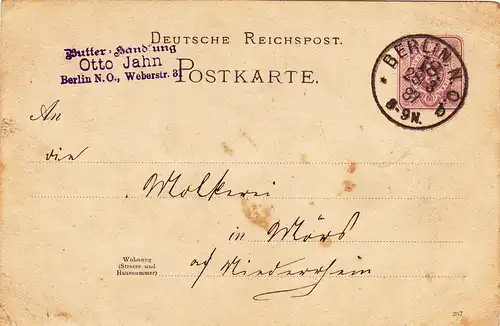 DEUTSCHE REICHSPOST.
Butter-Handlung
Otto Jahn
Berlin N.O., Weberstr. 31
POSTKARTE.
BERLIN, N.O.
87
8-9N.
An
die
Molkerei
in Mörs
a/ Niederrhein
Wohnung
(Strasse und
Hausnummer)
287